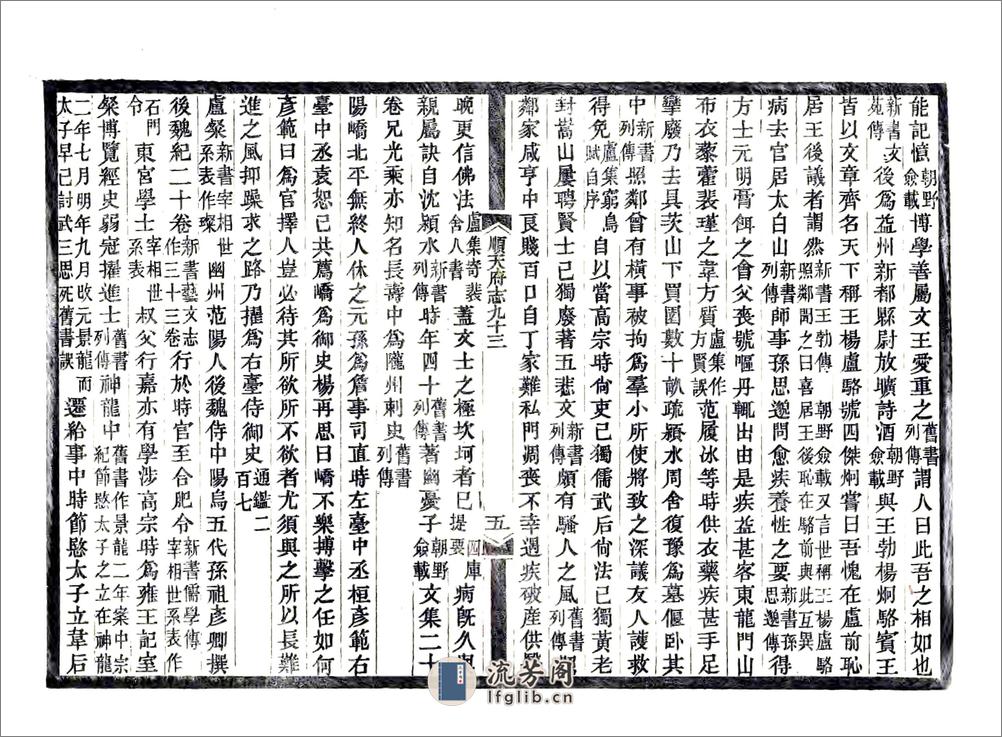 能記憶朝野僉載博學善屬文王愛重之舊書列傳謂人曰此吾之相如也
新書文苑傳後爲益州新都縣尉放曠詩酒朝野僉載與王勃楊炯駱賓王
皆以文章齊名天下稱王楊盧駱號四傑炯嘗曰吾愧在盧前恥
居王後議者謂然新書王勃傳 朝野僉載又言世稱王楊盧駱照鄰聞之曰喜居王後恥在駱前與此互異
病去官居太白山新書列傳師事孫思邈問愈疾養性之要新書孫思邈傳得
方士元明膏餌之會父喪號嘔丹輒出由是疾益甚客東龍門山
布衣藜藿裴瑾之韋方質盧集作方賢誤范履冰等時供衣藥疾甚手足
攣廢乃去具茨山下買園數十畝疏潁水周舍復豫爲墓偃卧其
中新書列傳照鄰曾有橫事被拘爲羣小所使將致之深議友人護救
得免盧集窮鳥賦自序自以當高宗時尙吏己獨儒武后尙法己獨黃老
封嵩山屢聘賢士己獨廢著五悲文新書列傳頗有騷人之風舊書列傳
鄰家咸亨中良賤百口自丁家難私門凋喪不幸遇疾破產供
順天府志九十三 五
晚更信佛法盧集寄裴舍人書蓋文士之極坎坷者已四庫提要病旣久與
親屬訣自沈潁水新書列傳時年四十舊書列傳著幽憂子朝野僉載文集二十
卷兄光乘亦知名長壽中爲隴州刺史舊書列傳
陽嶠北平無終人休之元孫爲詹事司直時左臺中丞桓彥範右
臺中丞袁恕己共薦嶠爲御史楊再思曰嶠不樂搏擊之任如何
彥範曰爲官擇人豈必待其所欲所不欲者尤須與之所以長難
進之風抑躁求之路乃擢爲右臺侍御史通鑑二百七
盧粲新書宰相世系表作璨幽州范陽人後魏侍中陽烏五代孫祖彥卿撰
後魏紀二十卷新書藝文志作三十三卷行於時官至合肥令新書儒學傳 宰相世系表作
石門令東宮學士宰相世系表叔父行嘉亦有學涉高宗時爲雍王記室
粲博覽經史弱冠擢進士舊書列傳神龍中舊書作景龍二年案中宗紀節愍太子之立在神龍
二年七月明年九月改元景龍而太子早已討武三思死舊書誤遷給事中時節愍太子立韋后
流芳閣
lfglib.cn